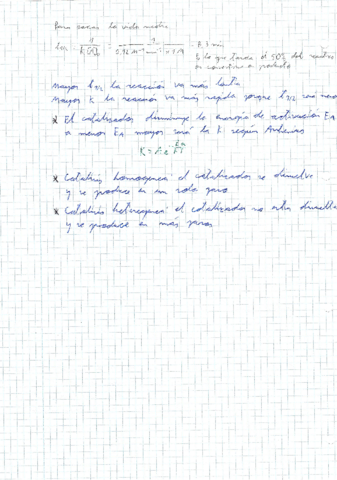 Para sacar la vida media
t1/2 = 1 / K[A]0 = 1
lo que tarda el 50% del reactivo
en convertirse a producto
Mayor t1/2 la reacción va más lenta
Mayor K la reacción va más rápida porque t1/2 será menor
* El catalizador disminuye la energía de activación EA
a menos EA mayor será la K según Arrhenius
K = A·e^-EA/RT
* Catálisis homogénea: el catalizador se disuelve
y se produce en un solo paso
* Catálisis heterogénea: el catalizador no está disuelto
y se produce en más pasos